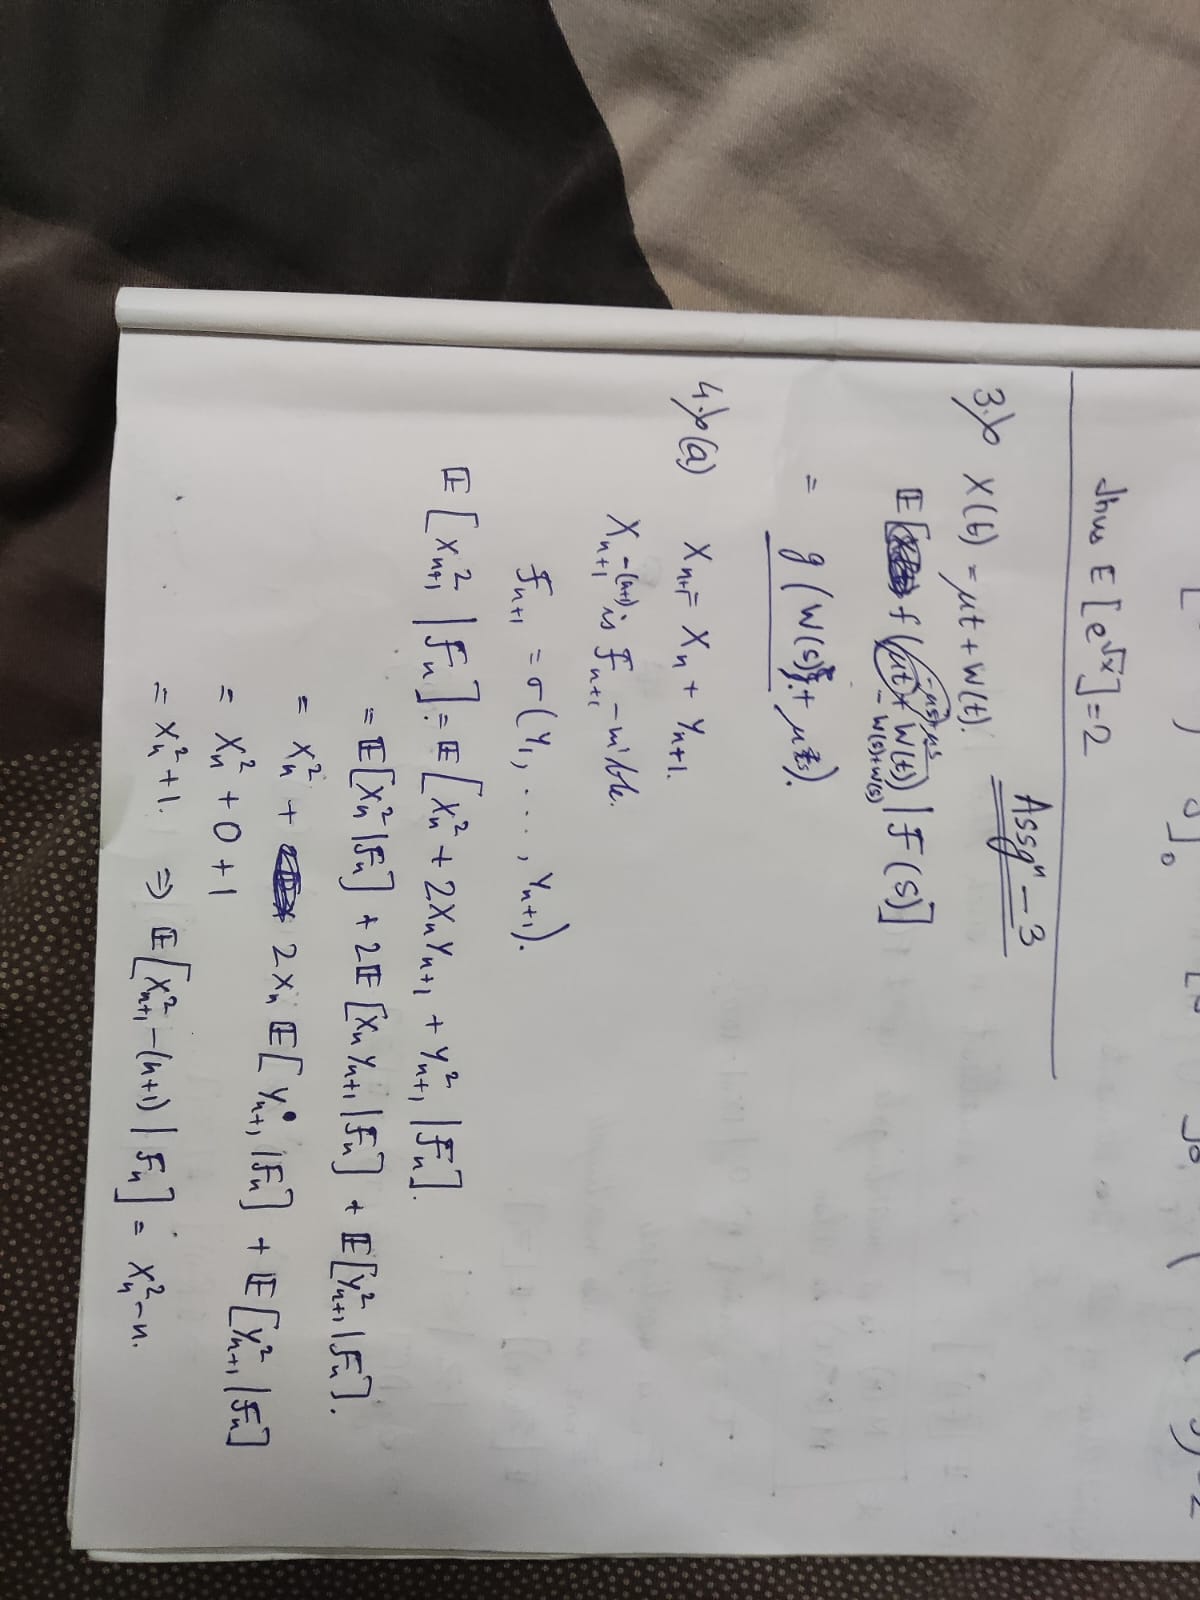 Thus E[e^√x] = 2
Assgⁿ - 3
3.) X(t) = μt + W(t).
𝔼[f(μt - μs + μs + W(t) - W(s) + W(s)) | F(s)]
= g(W(s) + μs).
4.) (a) Xₙ₊₁ = Xₙ + Yₙ₊₁.
Xₙ₊₁ - (n+1) is Fₙ₊₁ - m'ble.
Fₙ₊₁ = σ(Y₁, ..., Yₙ₊₁).
𝔼[Xₙ₊₁² | Fₙ] = 𝔼[Xₙ² + 2XₙYₙ₊₁ + Yₙ₊₁² | Fₙ].
= 𝔼[Xₙ² | Fₙ] + 2𝔼[XₙYₙ₊₁ | Fₙ] + 𝔼[Yₙ₊₁² | Fₙ].
= Xₙ² + 2Xₙ 𝔼[Yₙ₊₁ | Fₙ] + 𝔼[Yₙ₊₁² | Fₙ]
= Xₙ² + 0 + 1
= Xₙ² + 1. ⇒ 𝔼[Xₙ₊₁² - (n+1) | Fₙ] = Xₙ² - n.